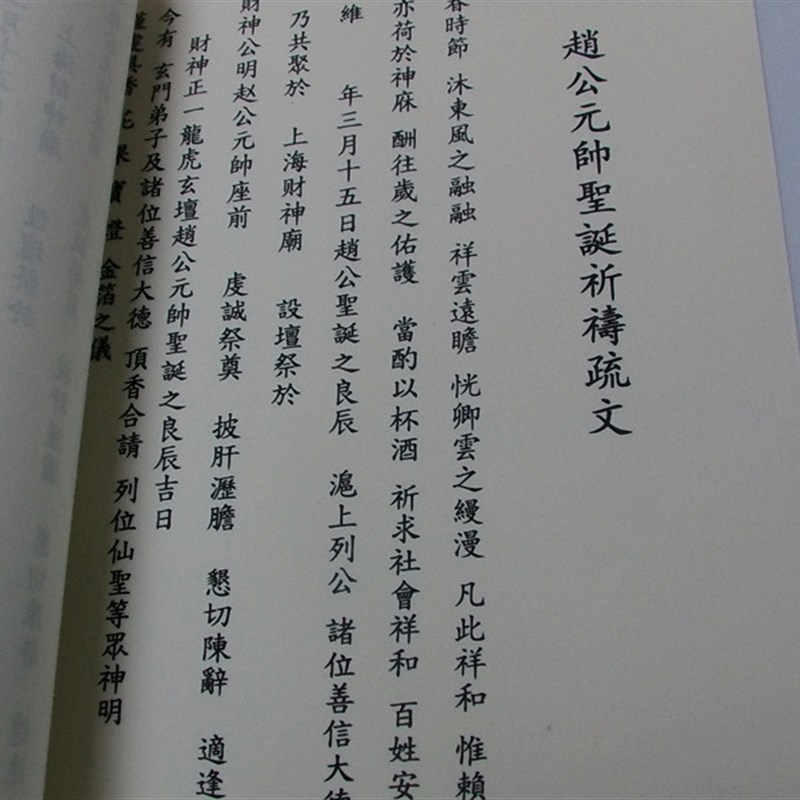 趙公元帥聖誕祈禱疏文
春時節 沐東風之融融 祥雲遠瞻 恍卿雲之縵漫 凡此祥和 惟賴
亦荷於神庥 酬往歲之佑護 當酌以杯酒 祈求社會祥和 百姓安
維 年三月十五日趙公聖誕之良辰 滬上列公 諸位善信大德
乃共聚於 上海財神廟 設壇祭於
財神公明赵公元帥座前 虔誠祭奠 披肝瀝膽 懇切陳辭 適逢
財神正一龍虎玄壇趙公元帥聖誕之良辰吉日
今有 玄門弟子及諸位善信大德 頂香合請 列位仙聖等眾神明
謹虔具香 花 果 寶 燈 金箔之儀